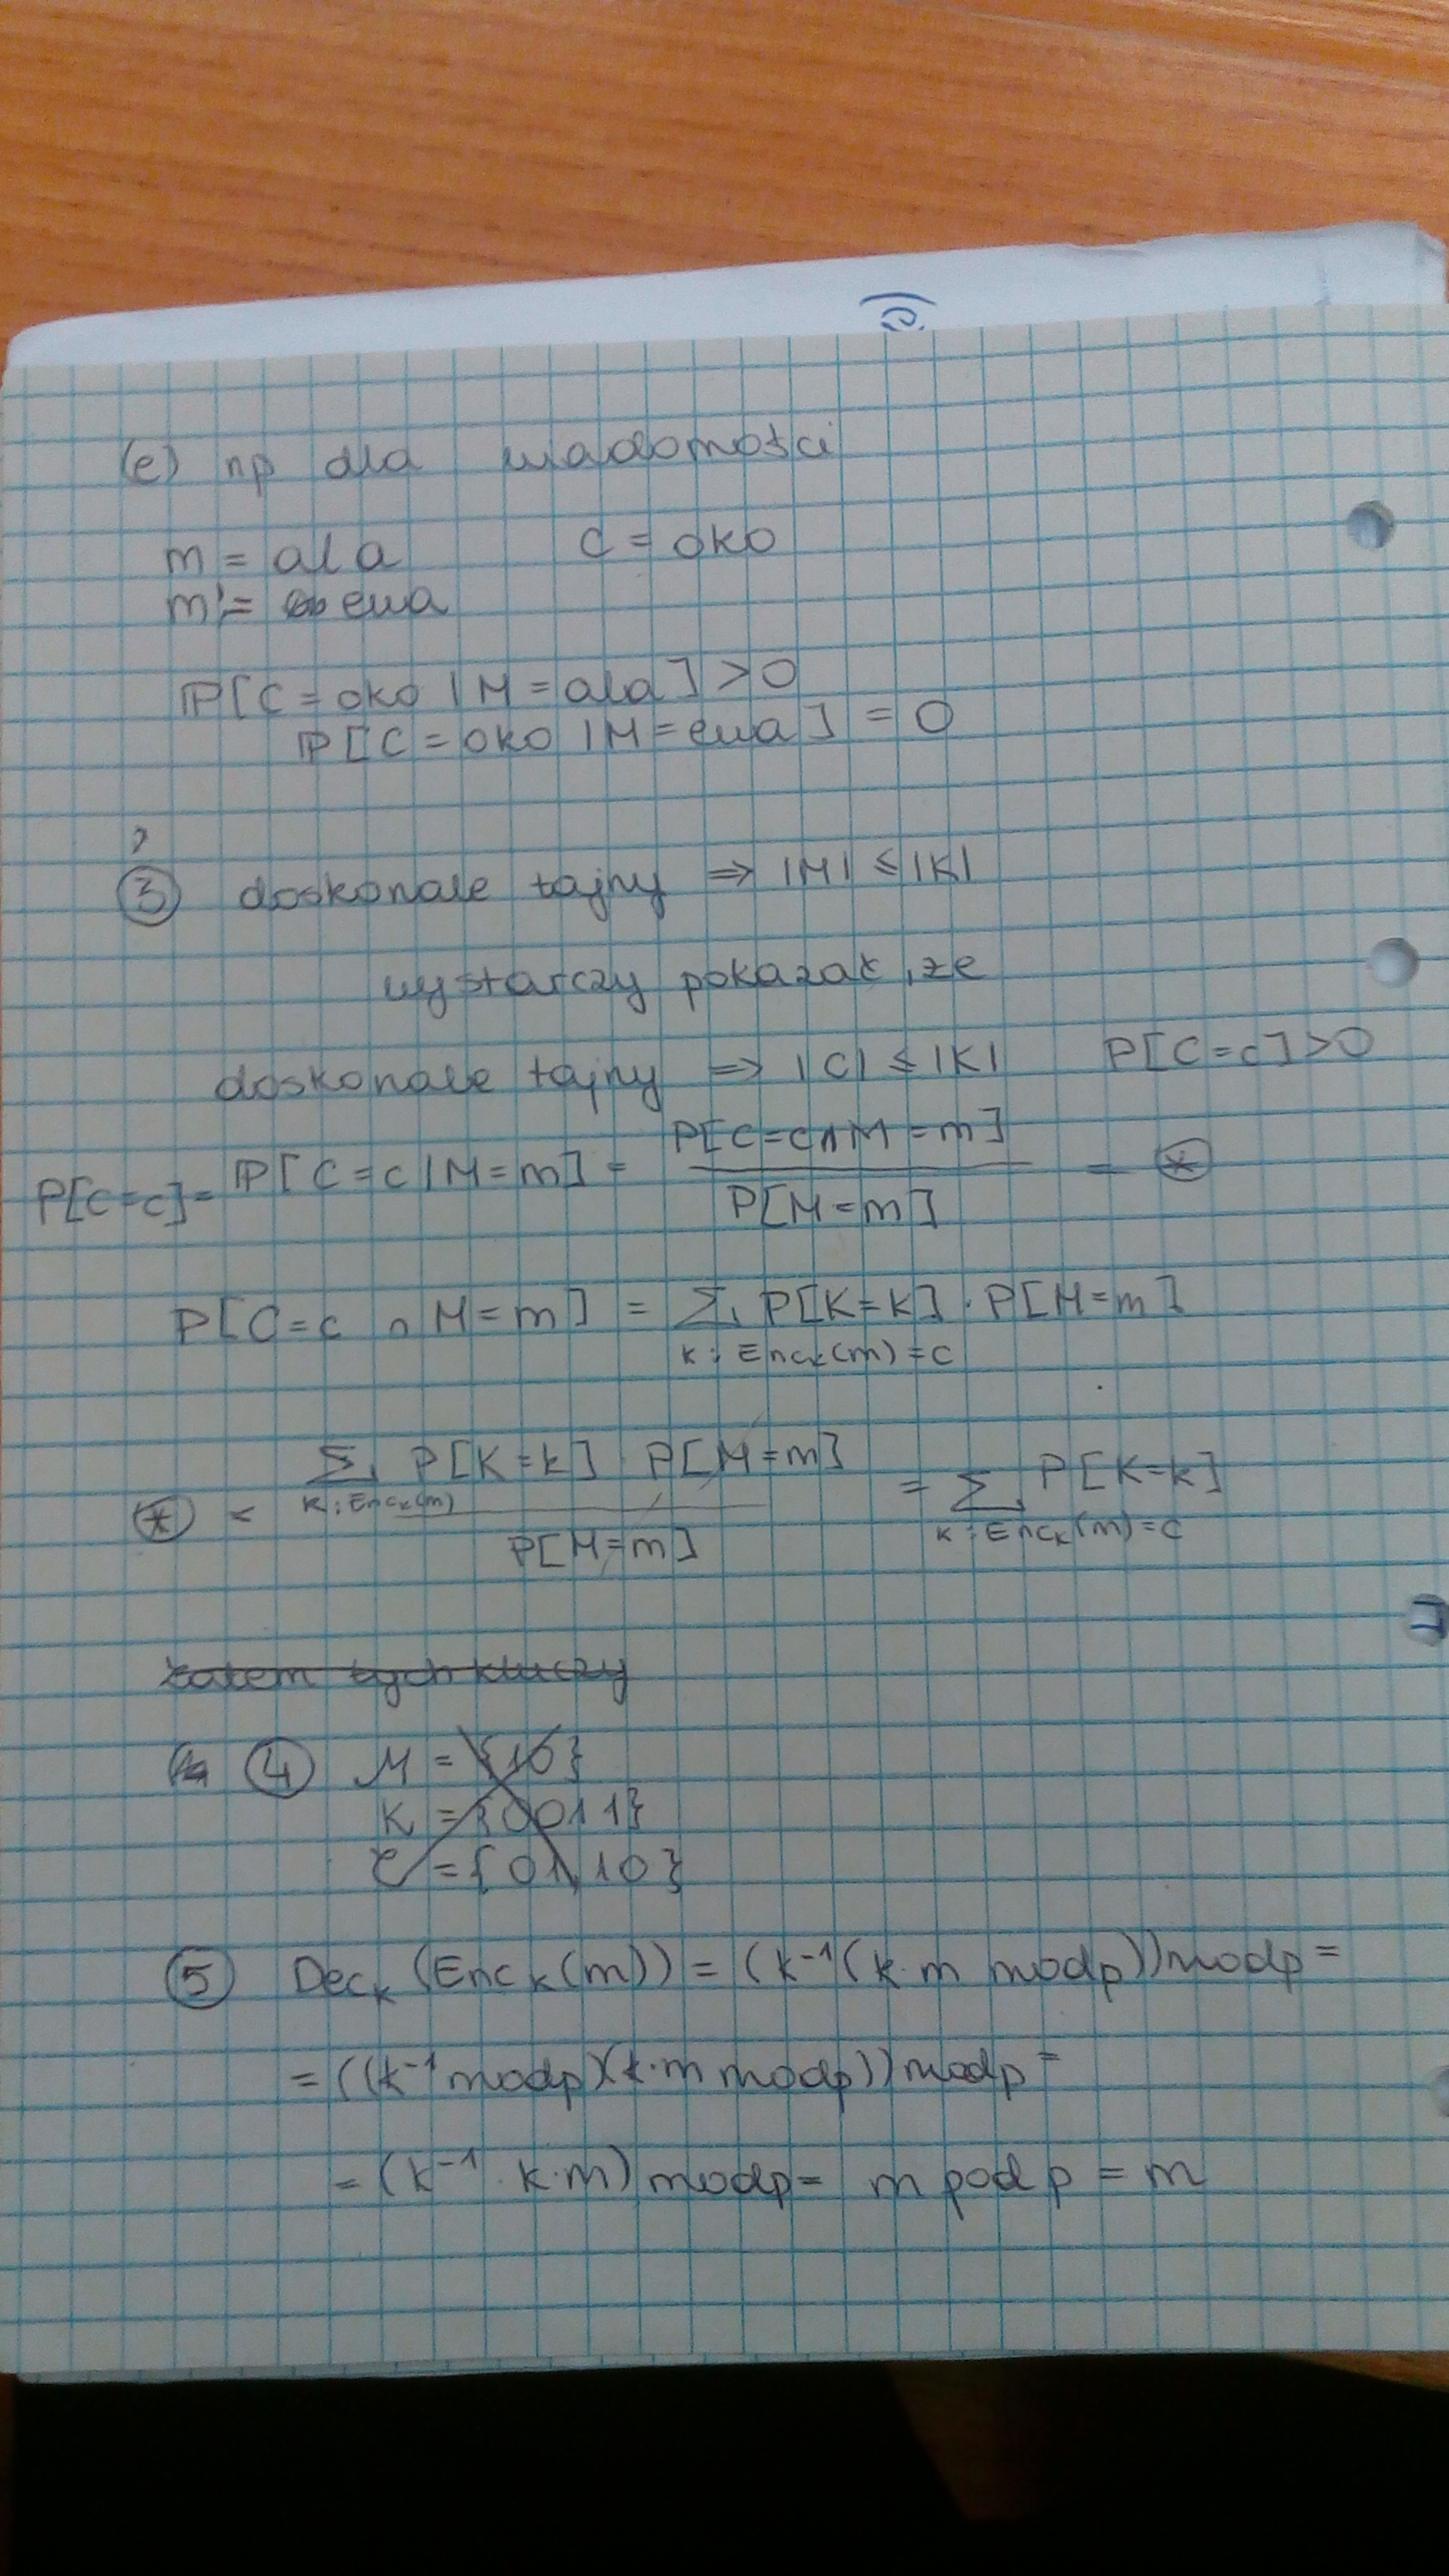 (e) np dla wiadomości
m = ala c = oko
m' = ewa
P[C = oko | M = ala] > 0
P[C = oko | M = ewa] = 0
③ doskonale tajny ⇒ |M| ≤ |K|
wystarczy pokazać, że
doskonale tajny ⇒ |C| ≤ |K| P[C=c]>0
P[C=c] = P[C=c | M=m] = P[C=c ∧ M=m] / P[M=m] = ⊛
P[C=c ∩ M=m] = Σ P[K=k] · P[M=m]
k : Enc_k(m) = c
⊛ = Σ P[K=k] · P[M=m] / P[M=m] = Σ P[K=k]
k : Enc_k(m) k : Enc_k(m) = c
zatem tych kluczy
④ M = {10}
K = {0011}
C = {01,10}
⑤ Dec_k (Enc_k(m)) = (k⁻¹(k·m modp))modp =
= ((k⁻¹ modp)(k·m modp))modp =
= (k⁻¹·k·m) modp = m pod p = m